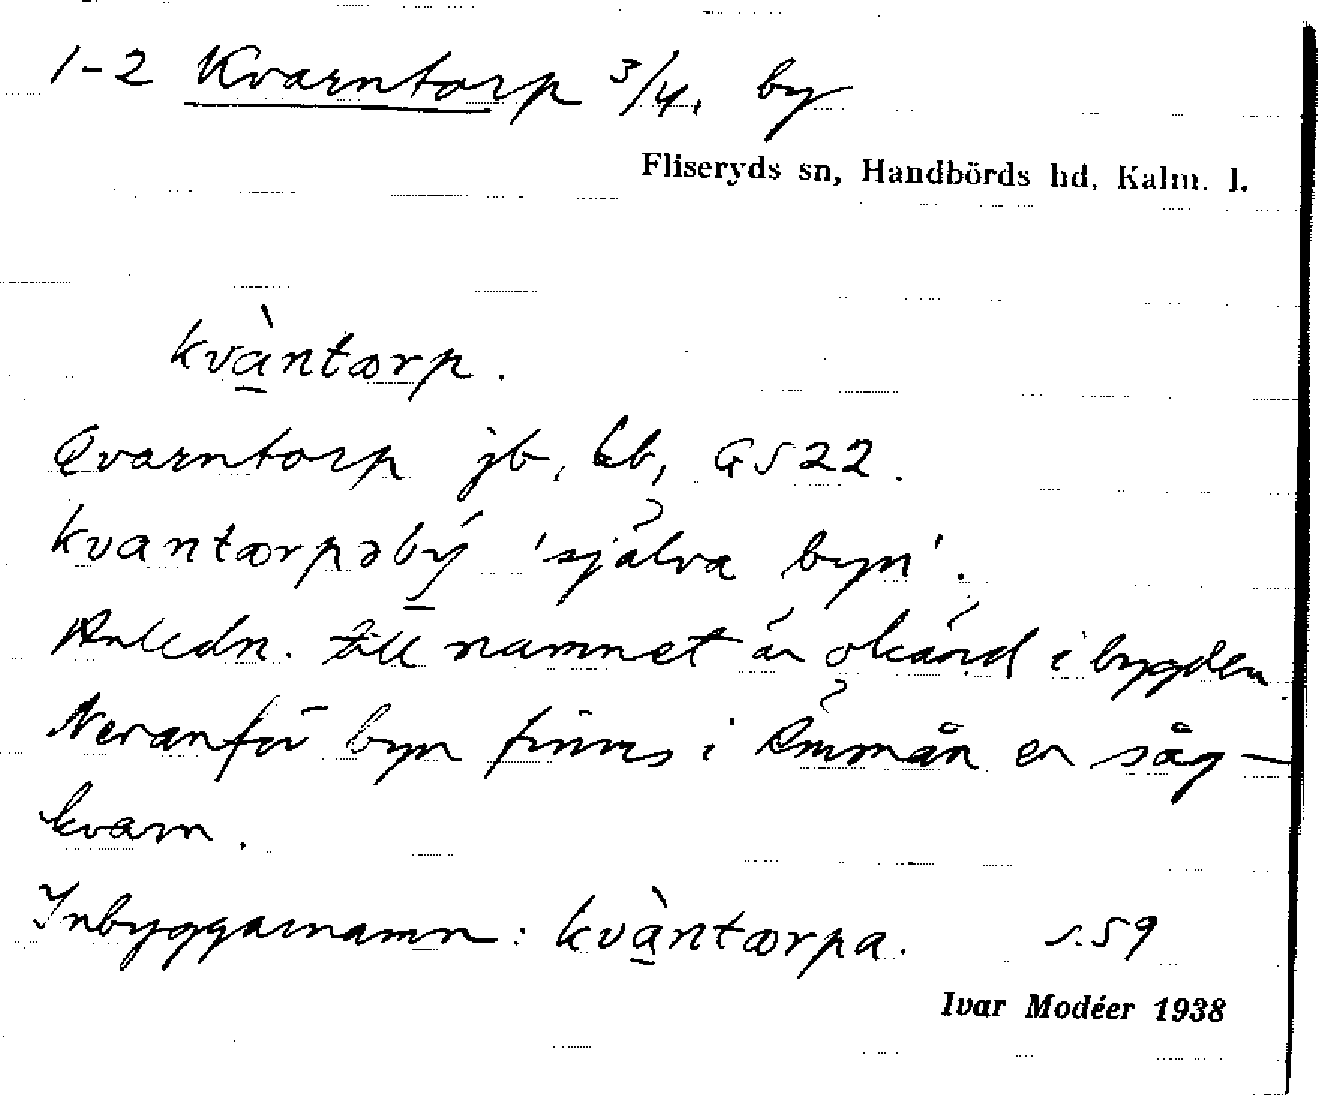 1-2 Kvarntorp 3/4, by
Fliseryds sn, Handbörds hd, Kalm. l.
kvàntærp.
Qvarntorp jb, kb, GS22.
kvantærpəbý 'själva byn'.
Anledn. till namnet är okänd i bygden
Neranför byn finns i Ämmån en såg-
kvarn.
Inbyggarnamn: kvàntærpa. s. 59
Ivar Modéer 1938